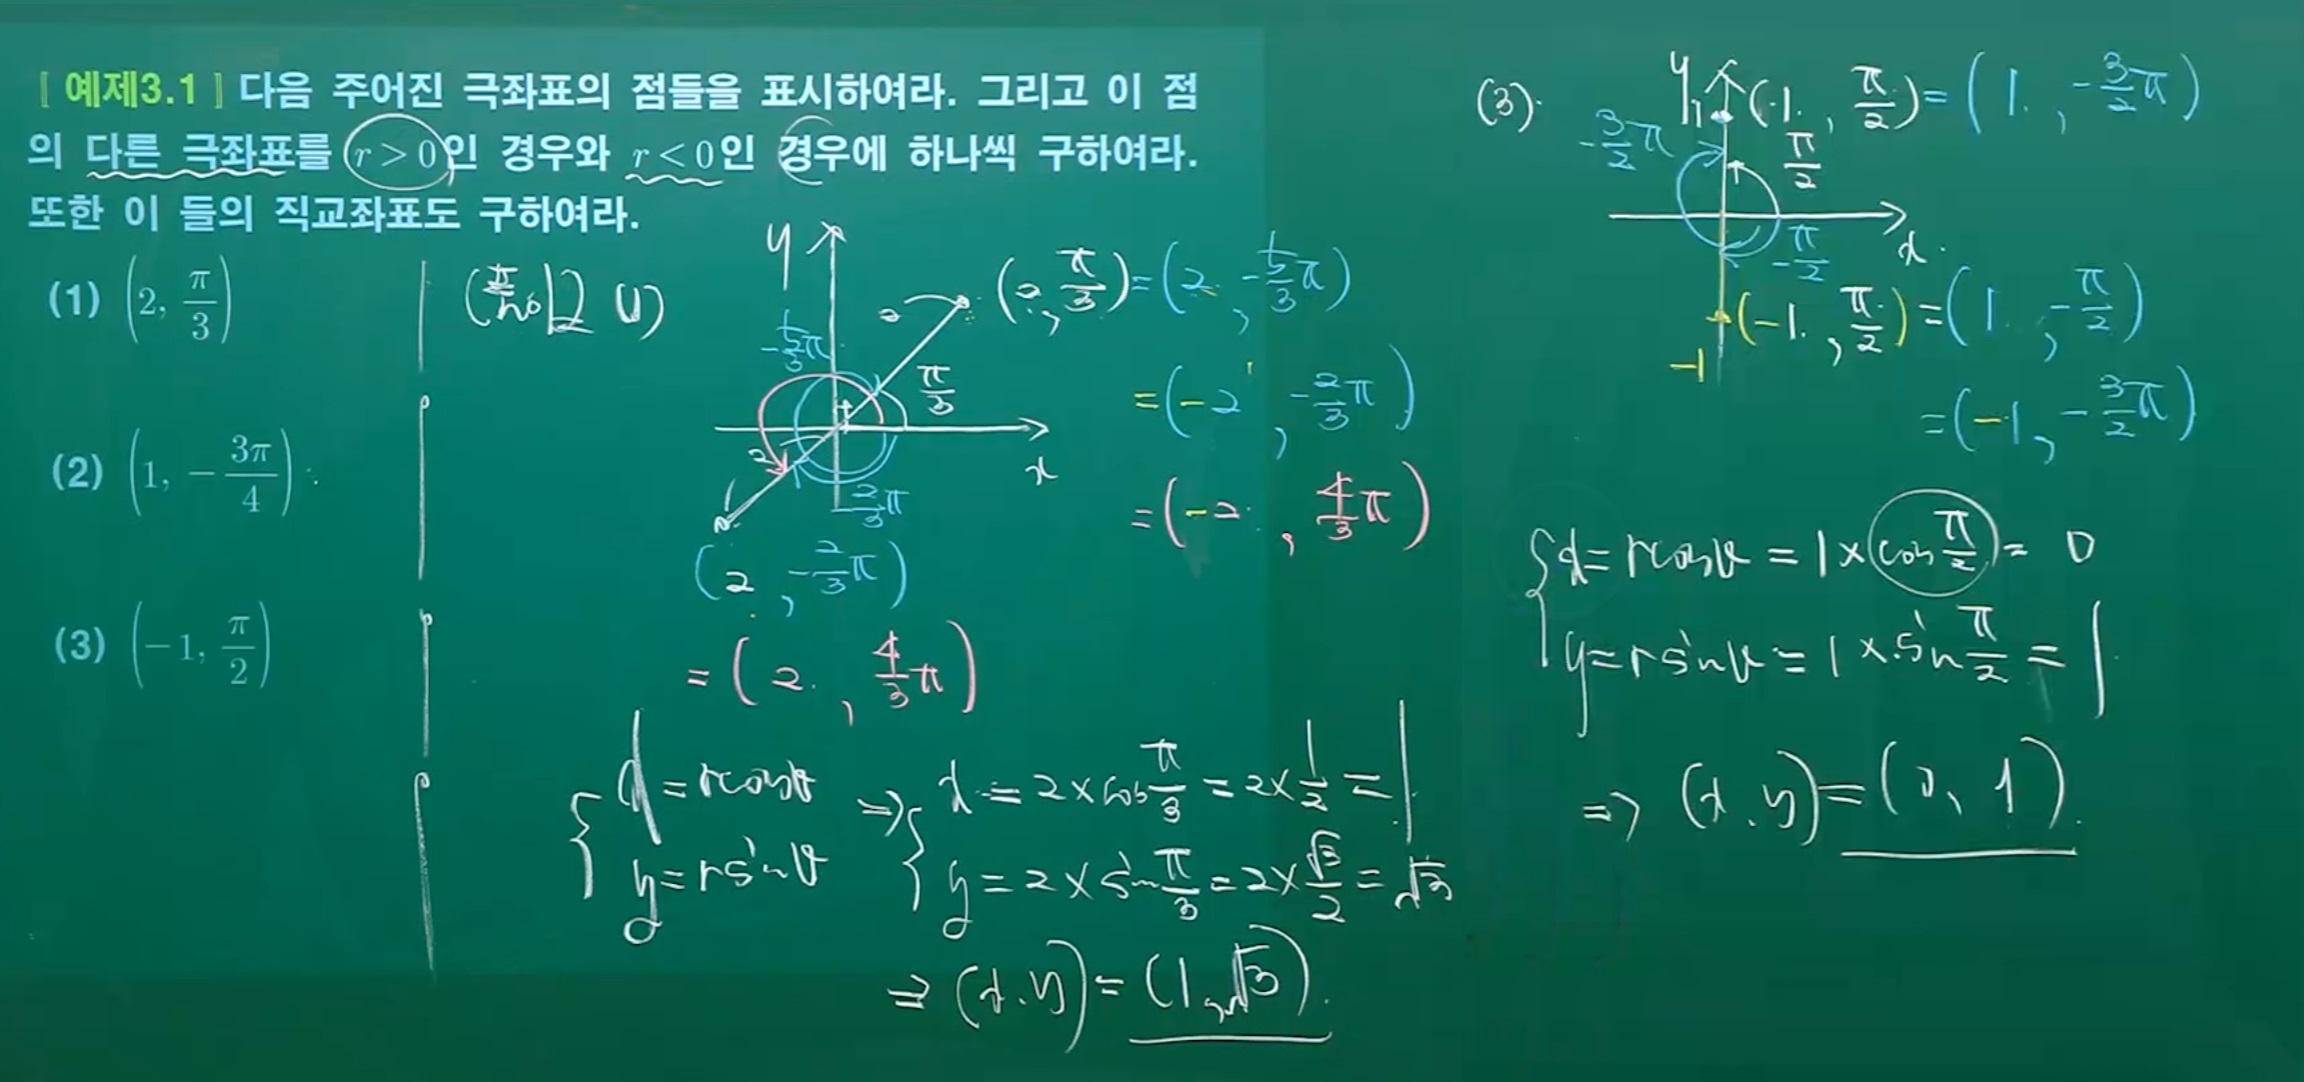 [ 예제3.1 ] 다음 주어진 극좌표의 점들을 표시하여라. 그리고 이 점
의 다른 극좌표를 r > 0인 경우와 r < 0인 경우에 하나씩 구하여라.
또한 이 들의 직교좌표도 구하여라.
(1) (2, π/3)
(2) (1, -3π/4)
(3) (-1, π/2)
y
x
2
π/3
-5/3π
-2/3π
2
(2, π/3) = (2, -5/3π)
= (-2, -2/3π)
= (-2, 4/3π)
(2, -2/3π)
= (2, 4/3π)
{ x = rcosθ
y = rsinθ
⇒ { x = 2×cos π/3 = 2×1/2 = 1
y = 2×sin π/3 = 2×√3/2 = √3
⇒ (x.y) = (1, √3).
(3).
y
1
(1, π/2) = (1, -3/2π)
-3/2π
π/2
x
-π/2
-1
(-1, π/2) = (1, -π/2)
= (-1, -3/2π)
{ x = rcosθ = 1×cos π/2 = 0
y = rsinθ = 1×sin π/2 = 1
⇒ (x.y) = (0, 1).